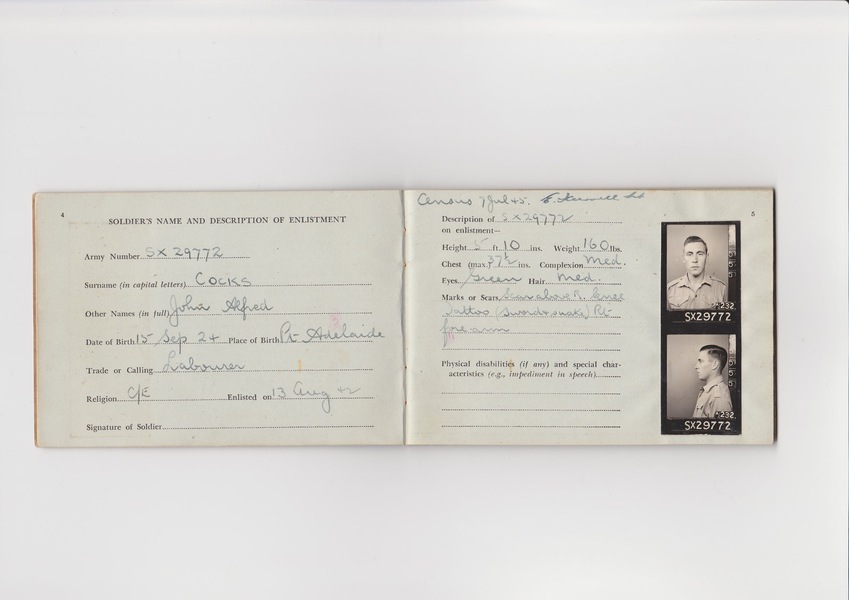 4
SOLDIER'S NAME AND DESCRIPTION OF ENLISTMENT
Army Number SX 29772
Surname (in capital letters) COCKS
Other Names (in full) John Alfred
Date of Birth 15 Sep 24 Place of Birth Pt. Adelaide
Trade or Calling Labourer
Religion C/E Enlisted on 13 Aug 42
Signature of Soldier
Census 7 Jul 45.
5
Description of SX29772
on enlistment—
Height 5 ft. 10 ins. Weight 160 lbs.
Chest (max.) 37½ ins. Complexion Med.
Eyes Green Hair Med.
Marks or Scars Scar above R. Knee
Tattoo (Sword & snake) Rt
forearm
Physical disabilities (if any) and special char-
acteristics (e.g., impediment in speech)
232
SX29772
232
SX29772